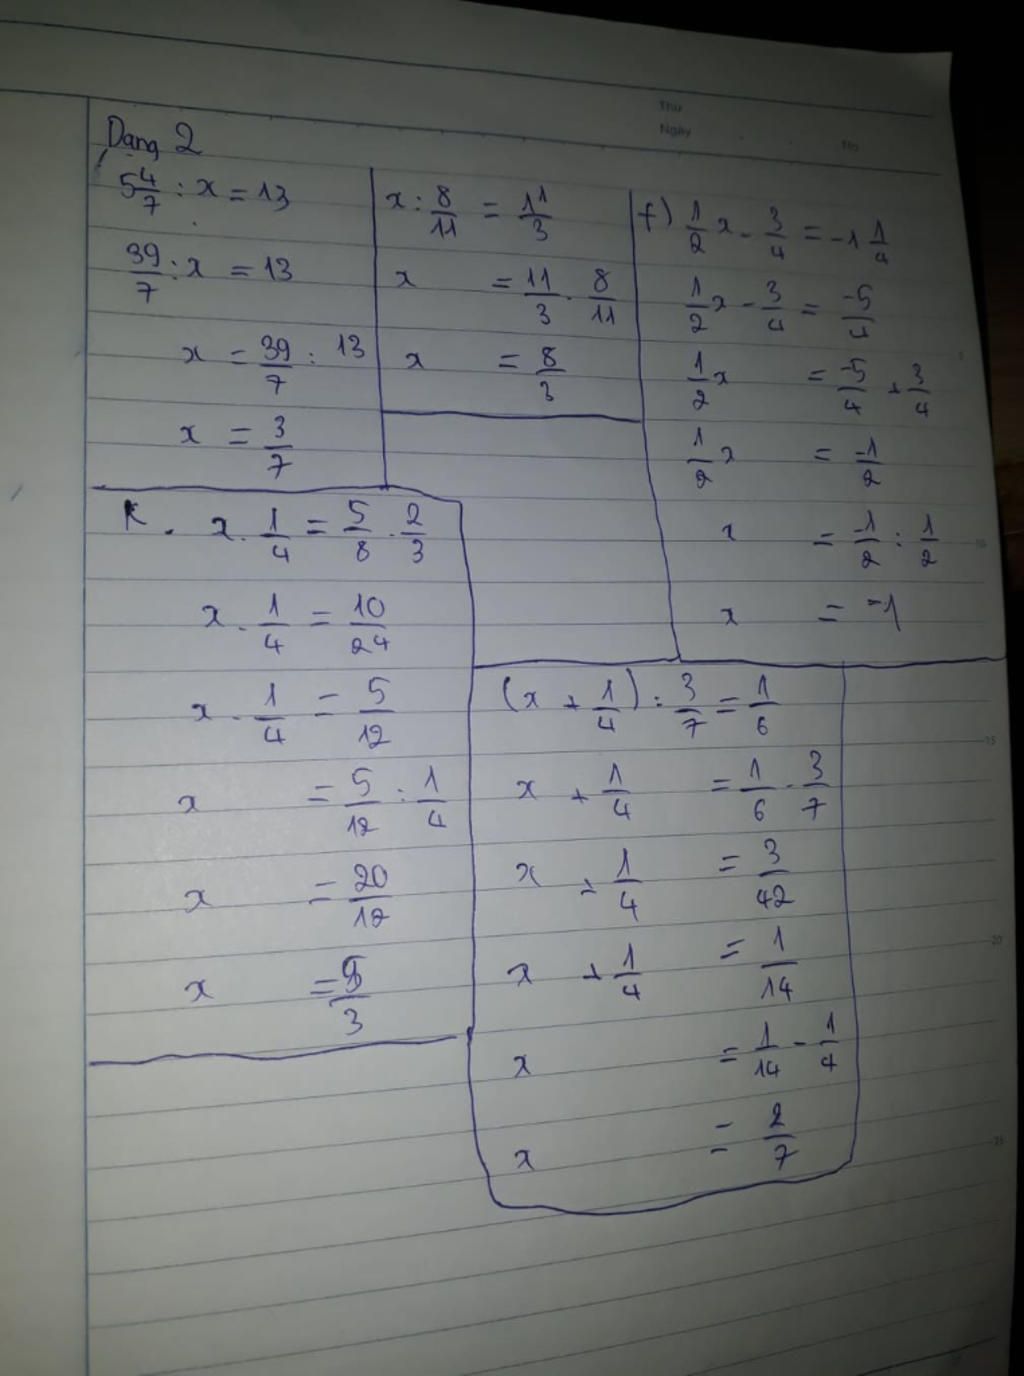 Thứ
Ngày
No
Dạng 2
5 4/7 : x = 13
39/7 : x = 13
x = 39/7 : 13
x = 3/7
x : 8/11 = 11/3
x = 11/3 . 8/11
x = 8/3
f) 1/2 x - 3/4 = -1 1/4
1/2 x - 3/4 = -5/4
1/2 x = -5/4 + 3/4
1/2 x = -1/2
x = -1/2 : 1/2
x = -1
K. x . 1/4 = 5/8 . 2/3
x . 1/4 = 10/24
x . 1/4 = 5/12
x = 5/12 : 1/4
x = 20/12
x = 5/3
(x + 1/4) : 3/7 = 1/6
x + 1/4 = 1/6 . 3/7
x + 1/4 = 3/42
x + 1/4 = 1/14
x = 1/14 - 1/4
x = 2/7